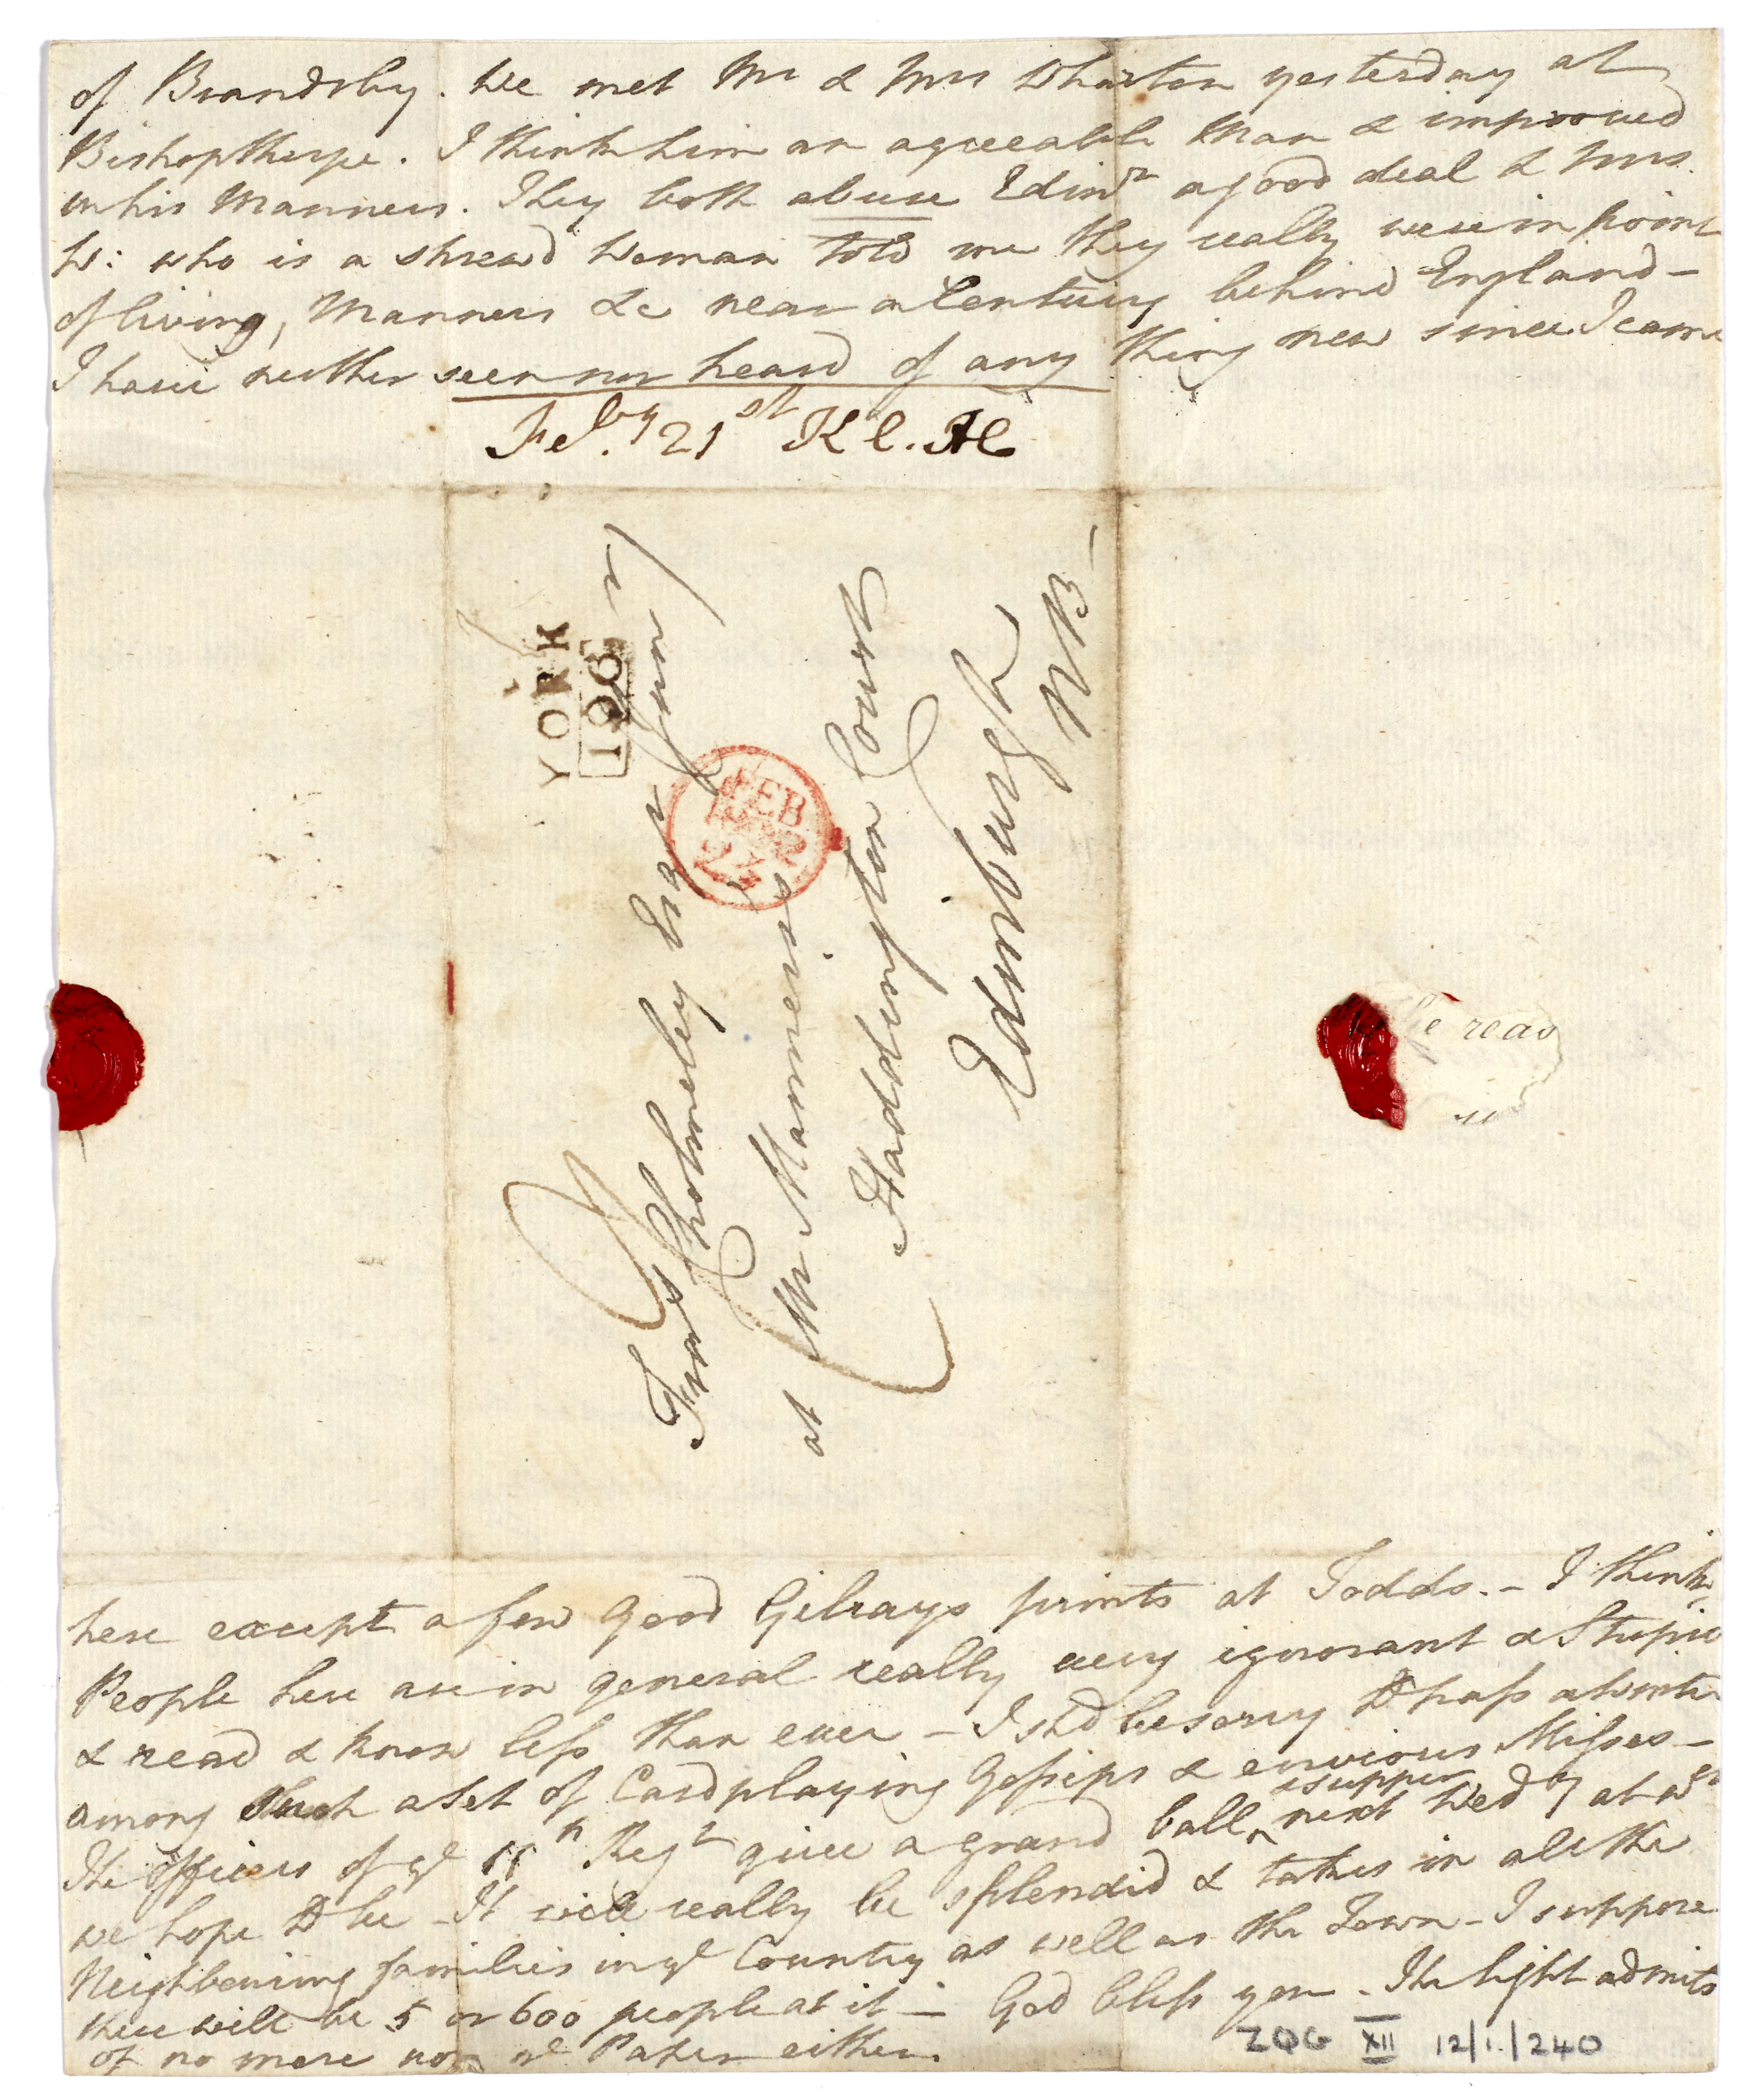 of Brandsby. We met Mr & Mrs Wharton yesterday at
Bishopthorpe. I think him an agreeable Man & improoved
in his Manners. They both abuse Edinr a good deal & Mrs.
W: who is a shrewd Woman told me they really were in point
of living, Manners &c near a Century behind England -
I have neither seen nor heard of any thing new since I came
Feby. 21st K C. H
YORK
198
Fras Cholmeley Esqr Junr
FEB
22
at Mr Manners
Haddington Court
Edinburgh
NB -
e reas
here except a few good Gilrays prints at Todds. - I think
People here are in general really very ignorant & Stupid
& read & know less than ever - I shd be sorry to pass a Winter
among Such a Set of Cardplaying Gossips & envious Misses -
The Officers of ye Regt give a grand ball & supper next Wedy at wch
we hope to be - It will really be splendid & takes in all the
Neighbouring families in ye Country as well as the Town - I suppose
there will be 5 or 600 people at it - God bless you - The light admits
of no more nor ye Paper either.
ZQG XII 12/1/240